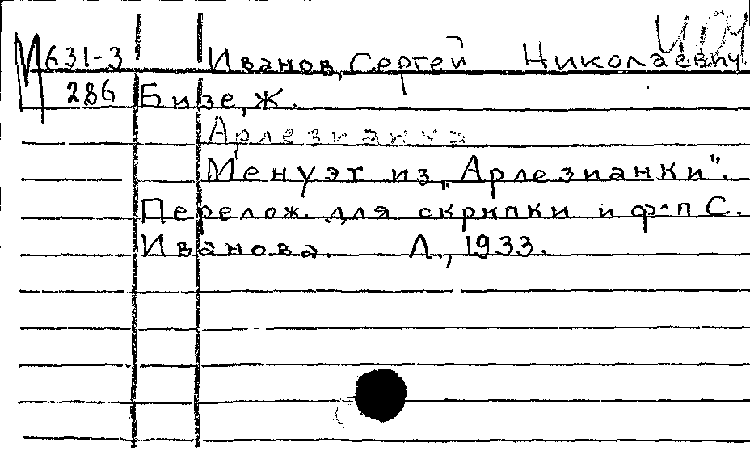 М 631-3 Иванов, Сергей Николаевич
286 Бизе, Ж.
Арлезианка
Менуэт из „Арлезианки".
Перелож. для скрипки и ф-п С.
Иванова. Л., 1933.